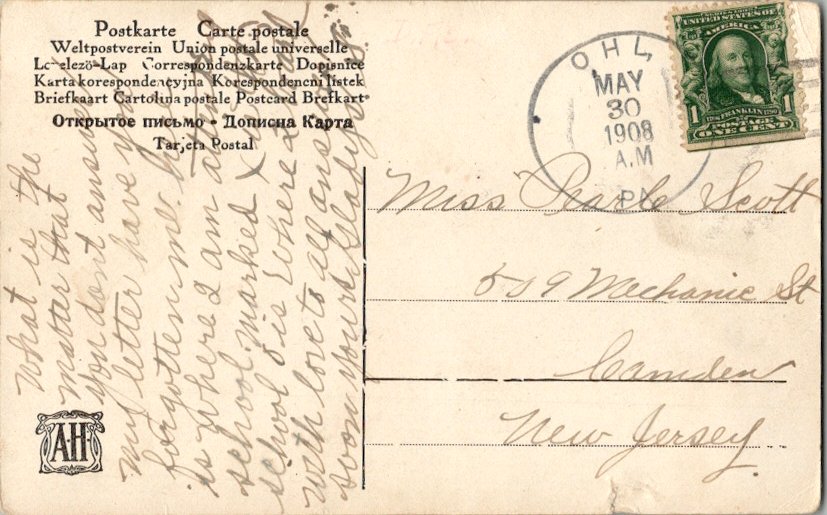 Postkarte Carte postale
Weltpostverein Union postale universelle
Levelezö-Lap Correspondenzkarte Dopisnice
Karta korespondencyjna Korespondencni listek
Briefkaart Cartolina postale Postcard Brefkort
Открытое письмо - Дописна Карта
Tarjeta Postal
OHL,
MAY
30
1908
A.M
PA
SERIES 1902
UNITED STATES OF
AMERICA
FRANKLIN
1 1
POSTAGE
ONE CENT
Miss Pearle Scott
509 Mechanic St
Camden
New Jersey
What is the
matter that
you dont answer
my letter have you
forgotten me.
is where I am at
school marked X
school o is where I
with love to all ans
soon yours Gladys
AH